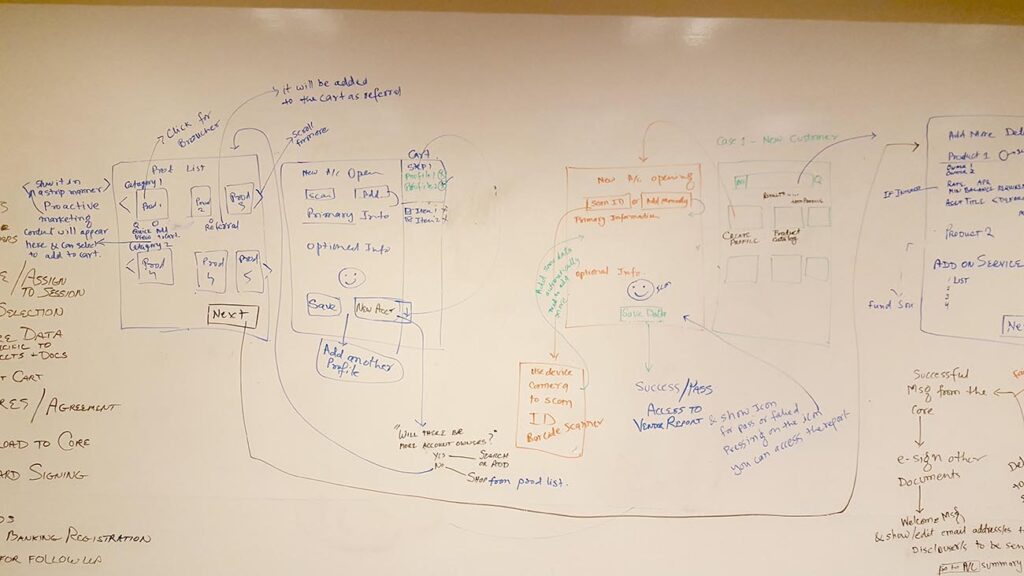 it will be added
to the cart as referral
Click for
Broucher
Scroll
for more
Show it in
a strip manner
Proactive
marketing
content will appear
here & can select
to add to cart.
Prod List
Category 1
Prod 1
Prod
2
Prod
3
Referral
Category 2
Prod
4
Prod
5
Prod
5
Next
New A/c Open
Scan
Add
Primary Info
Optional Info
Save
New Acct
Add another
Profile
Cart
Profile 1
Profile 2
Item 1 X
Item 2 X
"Will there be
more account owners?"
Yes — Search
or Add
No — Shop from prod list.
New A/c opening
Scan ID or Add Manually
Primary Information
Optional Info.
Icon
Save Data
Use device
camera
to scan
ID
Barcode Scanner
Success/Pass
Access to
Vendor Report
& show Icon
for pass or failed
Pressing on the icon
you can access the report
Case 1 - New Customer
Create
Profile
Product
Catalog
If Insured
Fund
Add More
Product 1
Owner 1
Owner 2
Rate APR
Min Balance
Acct Title
Product 2
Add on Service
List
1
2
3
4
Successful
Msg from the
Core
e-sign other
Documents
Welcome Msg
& show/edit email
to be
A/c Summary
/ Assign
to Session
Data
to
+ Docs
Cart
/ Agreement
to Core
Signing
Banking Registration
for follow up